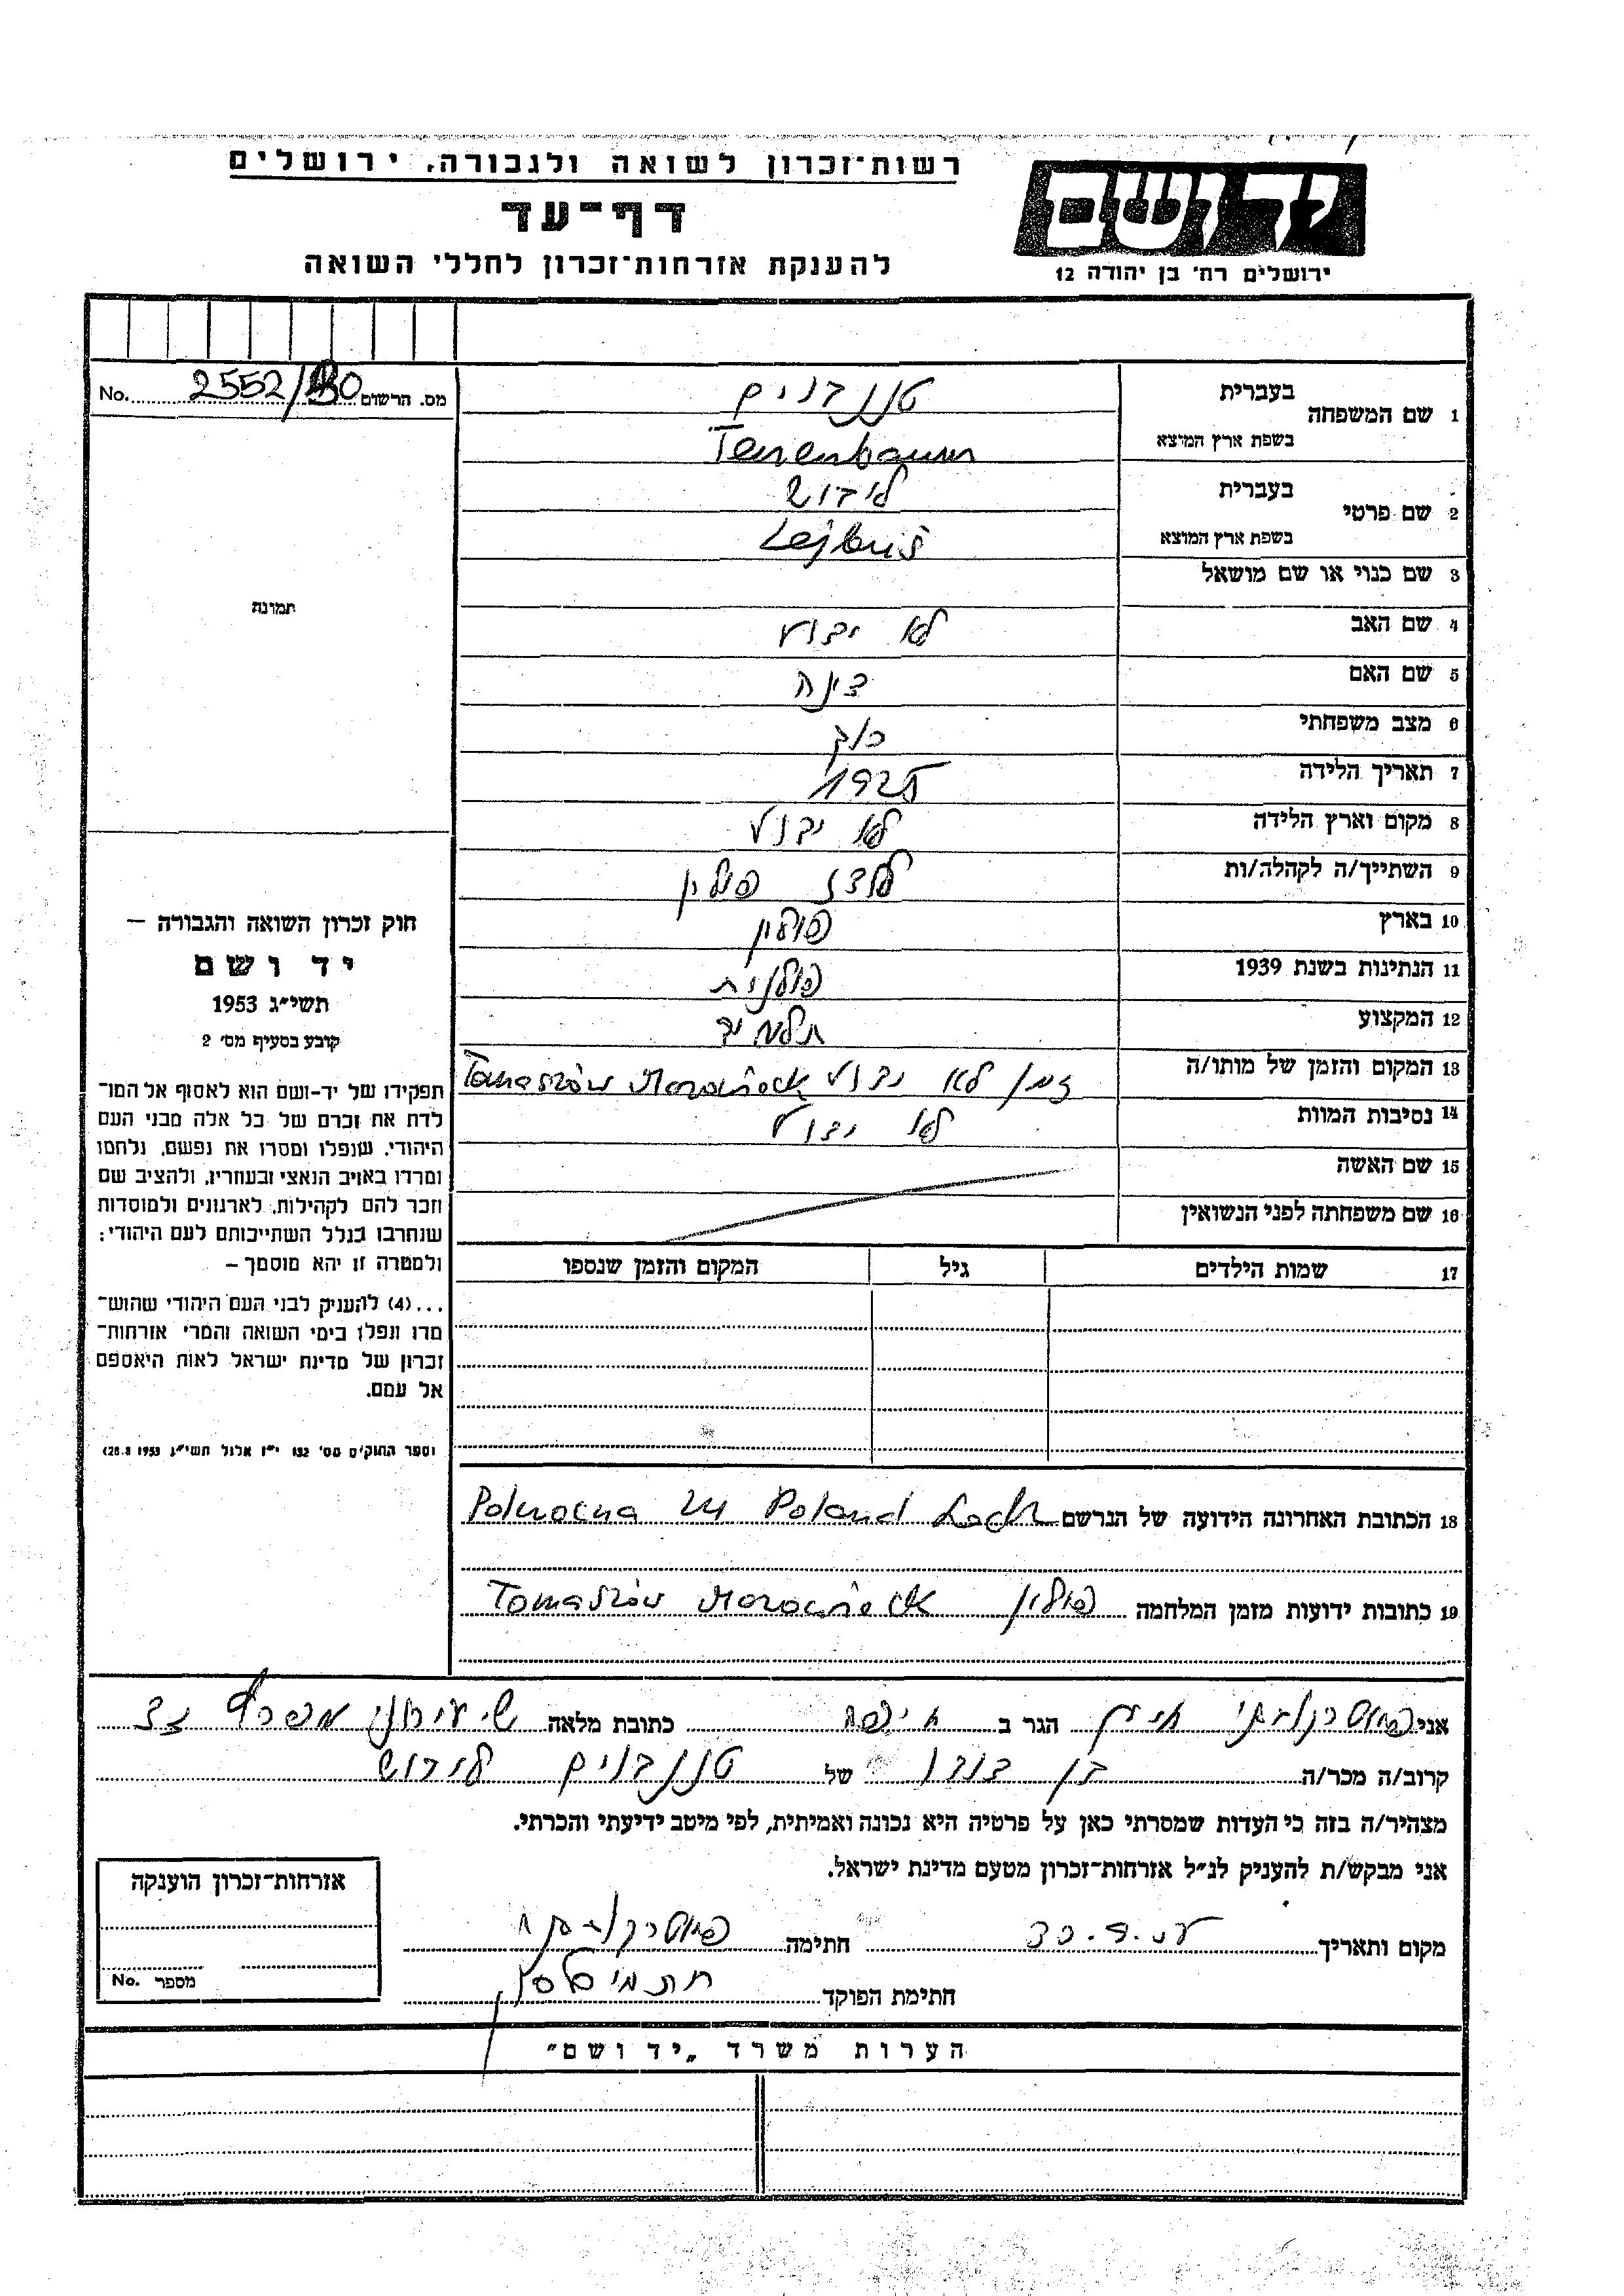 רשות־זכרון לשואה ולגבורה, ירושלים
דף־עד
להענקת אזרחות־זכרון לחללי השואה
יד ושם
ירושלים רח' בן יהודה 12
מס. הרשום 2552/ No.
1 שם המשפחה
בעברית טננבוים
בשפת ארץ המוצא Tenenbaum
2 שם פרטי
בעברית ליבוש
בשפת ארץ המוצא Lejbuś
3 שם כנוי או שם מושאל
4 שם האב לא ידוע
5 שם האם דינה
6 מצב משפחתי רווק
7 תאריך הלידה 1925
8 מקום וארץ הלידה לא ידוע
9 השתייך/ה לקהלה/ות לודז פולין
10 בארץ פולין
11 הנתינות בשנת 1939 פולנית
12 המקצוע תלמיד
13 המקום והזמן של מותו/ה זמן לא ידוע Tomaszów
14 נסיבות המוות לא ידוע
15 שם האשה
16 שם משפחתה לפני הנשואין
17 שמות הילדים גיל המקום והזמן שנספו
תמונה
חוק זכרון השואה והגבורה –
יד ושם
תשי״ג 1953
קובע בסעיף מס' 2
תפקידו של יד-ושם הוא לאסוף אל המו־
לדת את זכרם של כל אלה מבני העם
היהודי, שנפלו ומסרו את נפשם, נלחמו
ומרדו באויב הנאצי ובעוזריו, ולהציב שם
וזכר להם לקהילות, לארגונים ולמוסדות
שנחרבו בגלל השתייכותם לעם היהודי;
ולמטרה זו יהא מוסמך –
...(4) להעניק לבני העם היהודי שהוש־
מדו ונפלו בימי השואה והמרי אזרחות־
זכרון של מדינת ישראל לאות היאספם
אל עמם.
(ספר החוקים מס' 132 י״ז אלול תשי״ג 28.8.1953)
18 הכתובת האחרונה הידועה של הנרשם Poland
19 כתובות ידועות מזמן המלחמה פולין Tomaszów
אני הגר ב חיפה כתובת מלאה
קרוב/ה מכר/ה בן דודו של טננבוים ליבוש
מצהיר/ה בזה כי העדות שמסרתי כאן על פרטיה היא נכונה ואמיתית, לפי מיטב ידיעתי והכרתי.
אני מבקש/ת להעניק לנ״ל אזרחות־זכרון מטעם מדינת ישראל.
מקום ותאריך חתימה
חתימת הפוקד
אזרחות־זכרון הוענקה
מספר No.
הערות משרד „יד ושם"